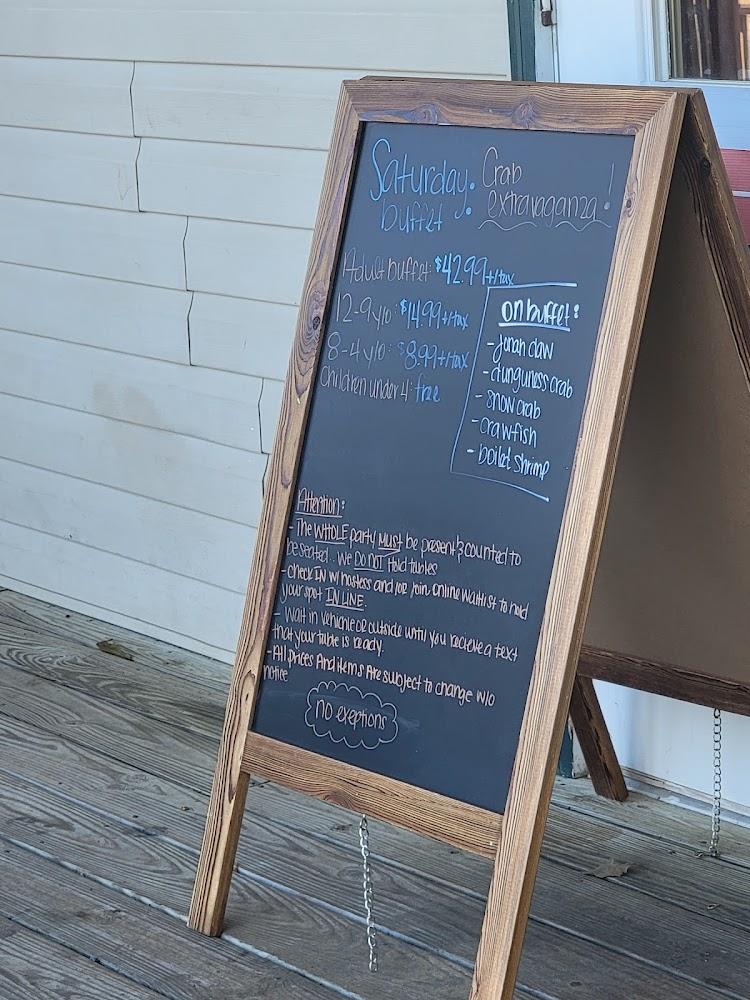 Saturday: Crab
buffet extravaganza!
Adult buffet: $42.99+/tax
12-9 y/o: $14.99+/tax
8-4 y/o: $8.99+/tax
Children under 4: free
on buffet:
- Jonah claw
- dunguness crab
- snow crab
- crawfish
- boiled shrimp
Attention:
- The WHOLE party MUST be present & counted to
be seated.. We DO NOT Hold tables
- check IN w/ hostess and/or join online Waitlist to hold
your spot IN LINE.
- Wait in vehicle or outside until you recieve a text
that your table is ready.
- All prices And items Are subject to change w/o
notice
no exeptions